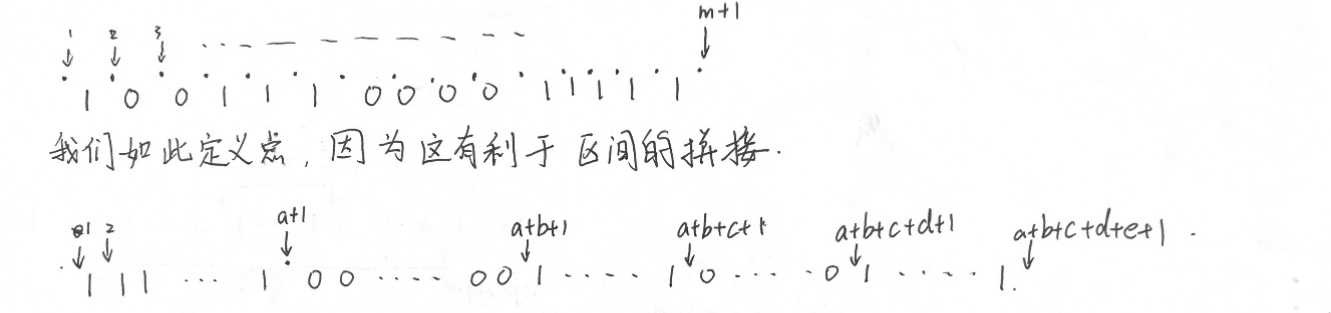 1 2 3 ... — — — — — — — m+1
↓ ↓ ↓ ↓
· 1 · 0 · 0 · 1 · 1 · 1 · 0 · 0 · 0 · 0 · 1 · 1 · 1 · 1 · 1 ·
我们如此定义点, 因为这有利于区间的拼接.
1 2 a+1 a+b+1 a+b+c+1 a+b+c+d+1 a+b+c+d+e+1 .
↓ ↓ ↓ ↓ ↓ ↓ ↓
1 1 1 ... 1 0 0 ···· 0 0 1 ···· 1 0 ···· 0 1 ···· 1 .